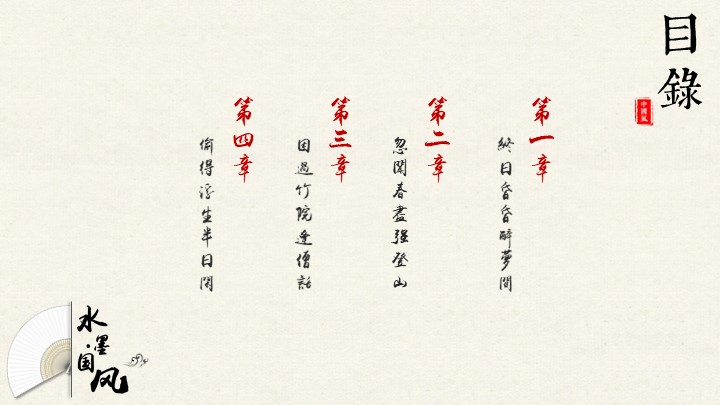 目錄
中國風
第一章
終日昏昏醉夢間
第二章
忽聞春盡强登山
第三章
因過竹院逢僧話
第四章
偷得浮生半日閑
水墨·国风